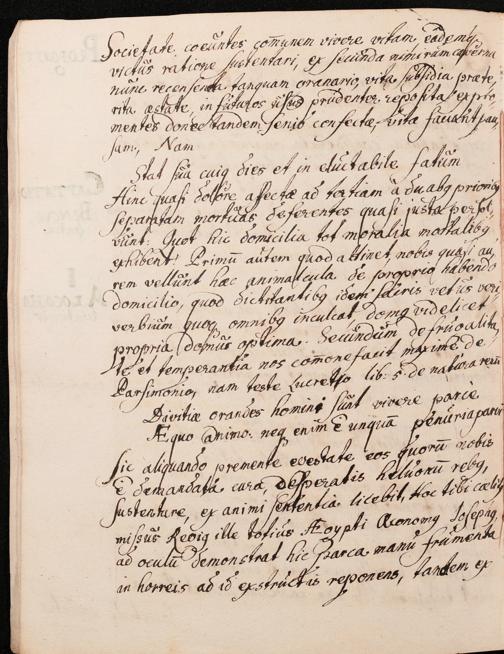 Societate coeuntes com̄unem vivere vitam eademq
victus ratione sustentari, ex secunda nimirum caverna
nunc recensenda tanquam granario, vitæ subsidia præte
rita æstate, in futuros usus prudenter reposita expro
mentes donec tandem senio confectæ, vitæ faciunt pau
sam, Nam
Stat sua cuiq dies et in eluctabile fatum
Hinc quasi dolore affectæ ad tertiam a duabq prioribq
separatam mortuas deferentes quasi justa persol
vunt: Quot hic domicilia tot moralia mortalibq
exhibent! Primū autem quod attinet, nobis quasi au
rem vellunt hæc animalcula de proprio habendo
domicilio, quod dictitantibq idem vetus veri
verbium quoq omnibq inculcat, domq videlicet
propria domus optima. Secundum de frugalita
te et temperantia nos com̄onefacit maxime de
Parsimonia, nam teste Lucretio lib: 5 de natura rerū
Divitiæ grandes homini sunt vivere parce
Æquo animo. neq enim ē unquā penuria parvi
Sic aliquando premente egestate eos quorū nobis
ē demandata cura, desperatis rebq,
sustentare, ex animi sententia licebit, Hoc tibi cælitq
missus Regiq ille totius Ægypti Œconomq Josephq
ad oculū demonstrat hic parca manu frumenta
in horreis ad id exstructis reponens, tandem ex